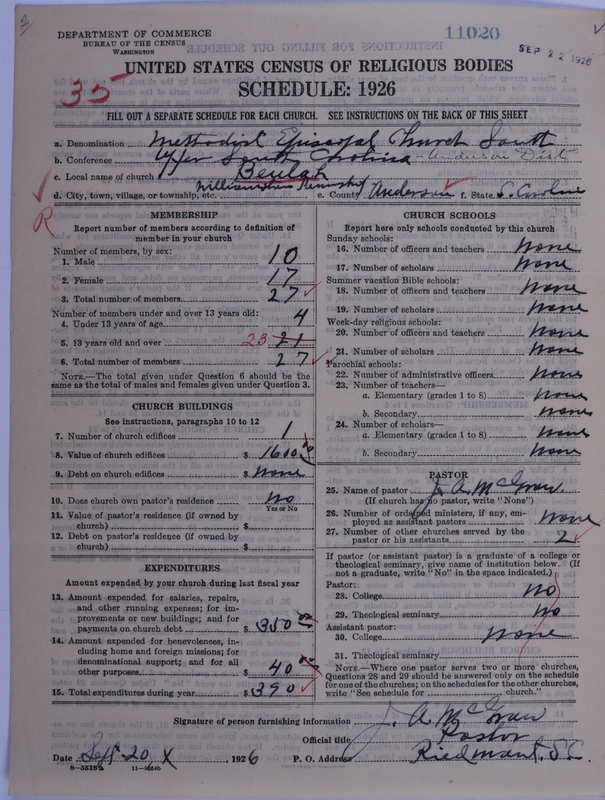 DEPARTMENT OF COMMERCE
BUREAU OF THE CENSUS
WASHINGTON
11020
SEP 22 1926
UNITED STATES CENSUS OF RELIGIOUS BODIES
SCHEDULE: 1926
35
FILL OUT A SEPARATE SCHEDULE FOR EACH CHURCH. SEE INSTRUCTIONS ON THE BACK OF THIS SHEET
a. Denomination Methodist Episcopal Church South
b. Conference Upper South Carolina - Anderson Dist
c. Local name of church Beulah
d. City, town, village, or township, etc. Williamston Township e. County Anderson f. State S. Caroline
R
MEMBERSHIP
Report number of members according to definition of member in your church
Number of members, by sex:
1. Male 10
2. Female 17
3. Total number of members 27
Number of members under and over 13 years old:
4. Under 13 years of age 4
5. 13 years old and over 23 21
6. Total number of members 27
NOTE.—The total given under Question 6 should be the
same as the total of males and females given under Question 3.
CHURCH BUILDINGS
See instructions, paragraphs 10 to 12
7. Number of church edifices 1
8. Value of church edifices $ 1600.00
9. Debt on church edifices $ None
10. Does church own pastor's residence No
Yes or No
11. Value of pastor's residence (if owned by
church) $
12. Debt on pastor's residence (if owned by
church) $
EXPENDITURES
Amount expended by your church during last fiscal year
13. Amount expended for salaries, repairs,
and other running expenses; for im-
provements or new buildings; and for
payments on church debt $ 350.00
14. Amount expended for benevolences, in-
cluding home and foreign missions; for
denominational support; and for all
other purposes $ 40.00
15. Total expenditures during year $ 390
CHURCH SCHOOLS
Report here only schools conducted by this church
Sunday schools:
16. Number of officers and teachers None
17. Number of scholars None
Summer vacation Bible schools:
18. Number of officers and teachers None
19. Number of scholars None
Week-day religious schools:
20. Number of officers and teachers None
21. Number of scholars None
Parochial schools:
22. Number of administrative officers None
23. Number of teachers—
a. Elementary (grades 1 to 8) None
b. Secondary None
24. Number of scholars—
a. Elementary (grades 1 to 8) None
b. Secondary None
PASTOR
25. Name of pastor J. A. McGraw
(If church has no pastor, write "None")
26. Number of ordained ministers, if any, em-
ployed as assistant pastors None
27. Number of other churches served by the
pastor or his assistants 2
If pastor (or assistant pastor) is a graduate of a college or
theological seminary, give name of institution below. (If
not a graduate, write "No" in the space indicated.)
Pastor:
28. College No
29. Theological seminary No
Assistant pastor:
30. College None
31. Theological seminary
NOTE.—Where one pastor serves two or more churches,
Questions 28 and 29 should be answered only on the schedule
for one of the churches; on the schedules for the other churches,
write "See schedule for church."
Signature of person furnishing information J. A. McGraw
Official title Pastor
Date Sept. 20, 1926 P. O. Address Piedmont, S.C.
8—5518a